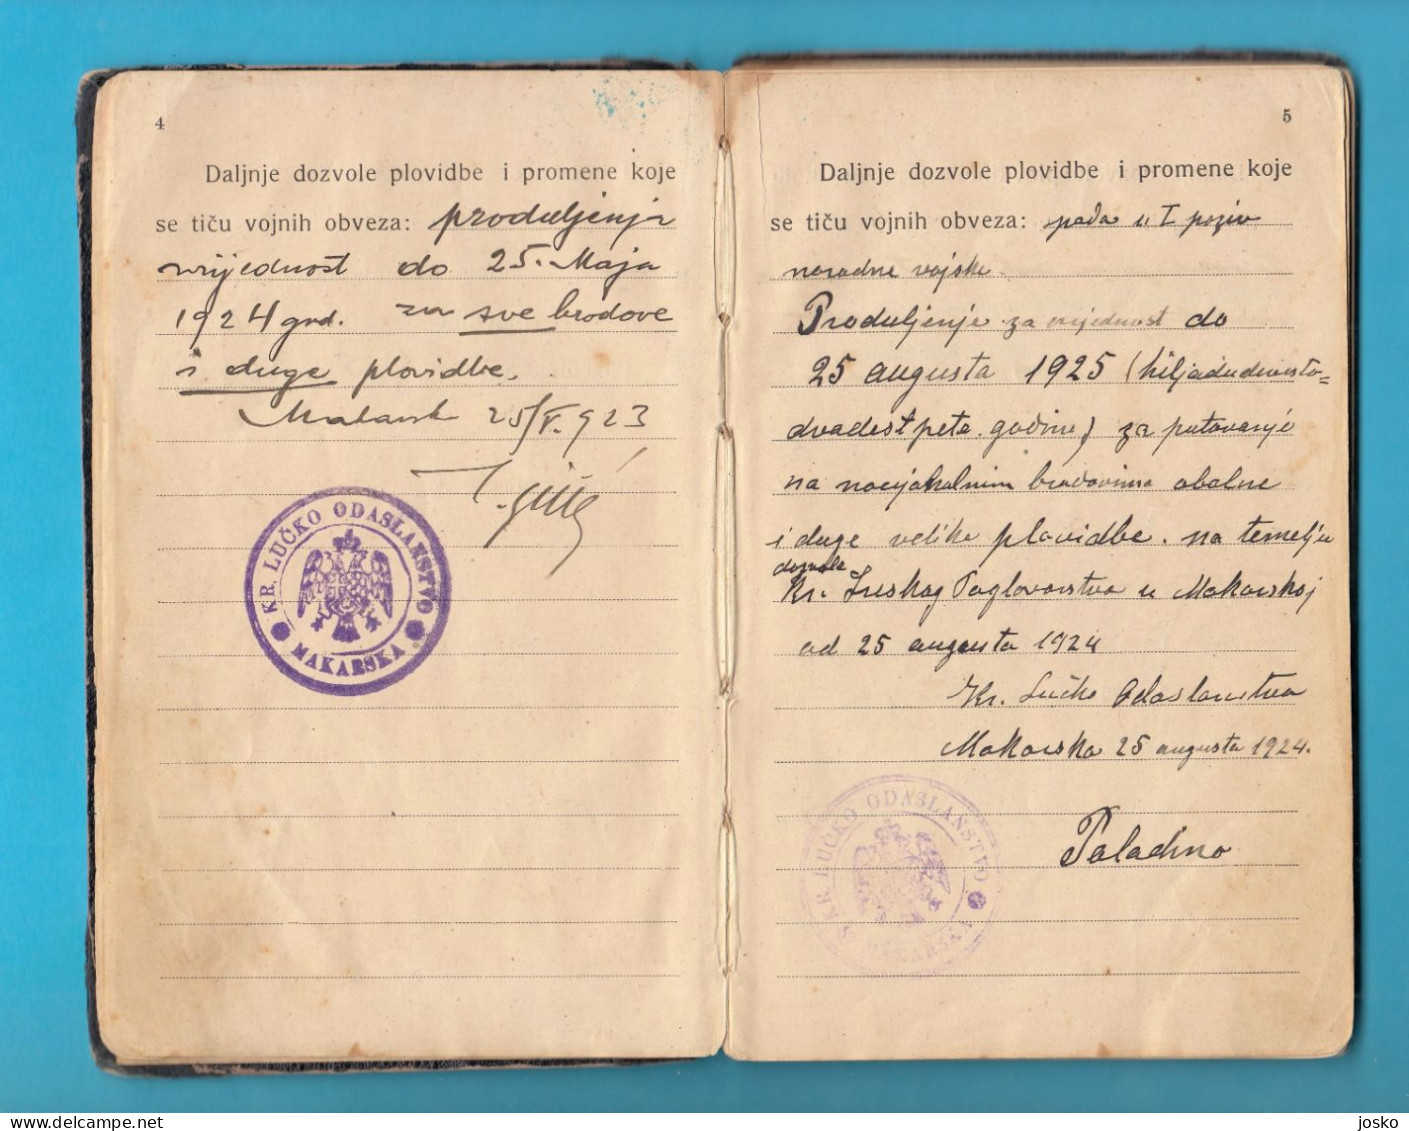 4
Daljnje dozvole plovidbe i promene koje
se tiču vojnih obveza: produljenja
vrijednost do 25. Maja
1924 god. za sve brodove
i duge plovidbe.
Makarsk 25/V. 923
KR. LUČKO ODASLANSTVO
MAKARSKA
5
Daljnje dozvole plovidbe i promene koje
se tiču vojnih obveza: pada u I poziv
narodne vojske
Produljenje za vrijednost do
25 augusta 1925 (hiljadudevesto=
dvadeset pete godine) za putovanje
na nacijonalnim brodovima obalne
i duge velike plovidbe. na temelju
dozvole
Kr. Sreskog Poglavarstva u Makarskoj
od 25 augusta 1924
Kr. Lučko Odaslanstvo
Makarska 25 augusta 1924.
Paladino
KR. LUČKO ODASLANSTVO
MAKARSKA
josko